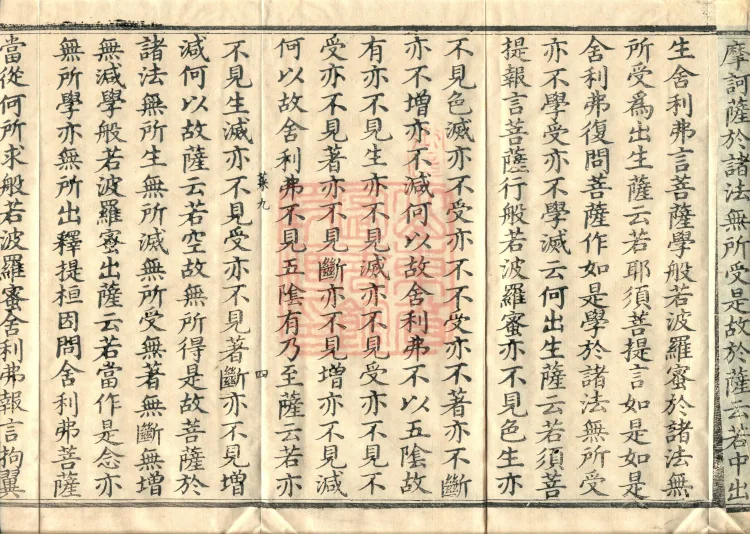 摩訶薩於諸法無所受是故於薩云若中出
生舍利弗言菩薩學般若波羅蜜於諸法無
所受為出生薩云若耶須菩提言如是如是
舍利弗復問菩薩作如是學於諸法無所受
亦不學受亦不學滅云何出生薩云若須菩
提報言菩薩行般若波羅蜜亦不見色生亦
不見色滅亦不受亦不不受亦不著亦不斷
亦不增亦不減何以故舍利弗不以五陰故
有亦不見生亦不見滅亦不見受亦不見不
受亦不見著亦不見斷亦不見增亦不見減
何以故舍利弗不見五陰有乃至薩云若亦
菜九 四
不見生滅亦不見受亦不見著斷亦不見增
減何以故薩云若空故無所得是故菩薩於
諸法無所生無所滅無所受無著無斷無增
無減學般若波羅蜜出薩云若當作是念亦
無所學亦無所出釋提桓因問舍利弗菩薩
當從何所求般若波羅蜜舍利弗報言拘翼